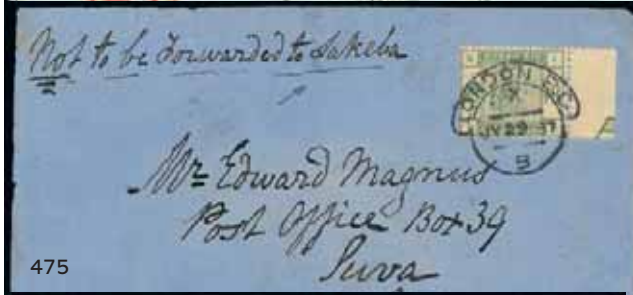 Not to be Forwarded to Lakeba
LONDON E.C.
JY 29 87
Mr Edward Magnus
Post Office Box 39
Suva
475